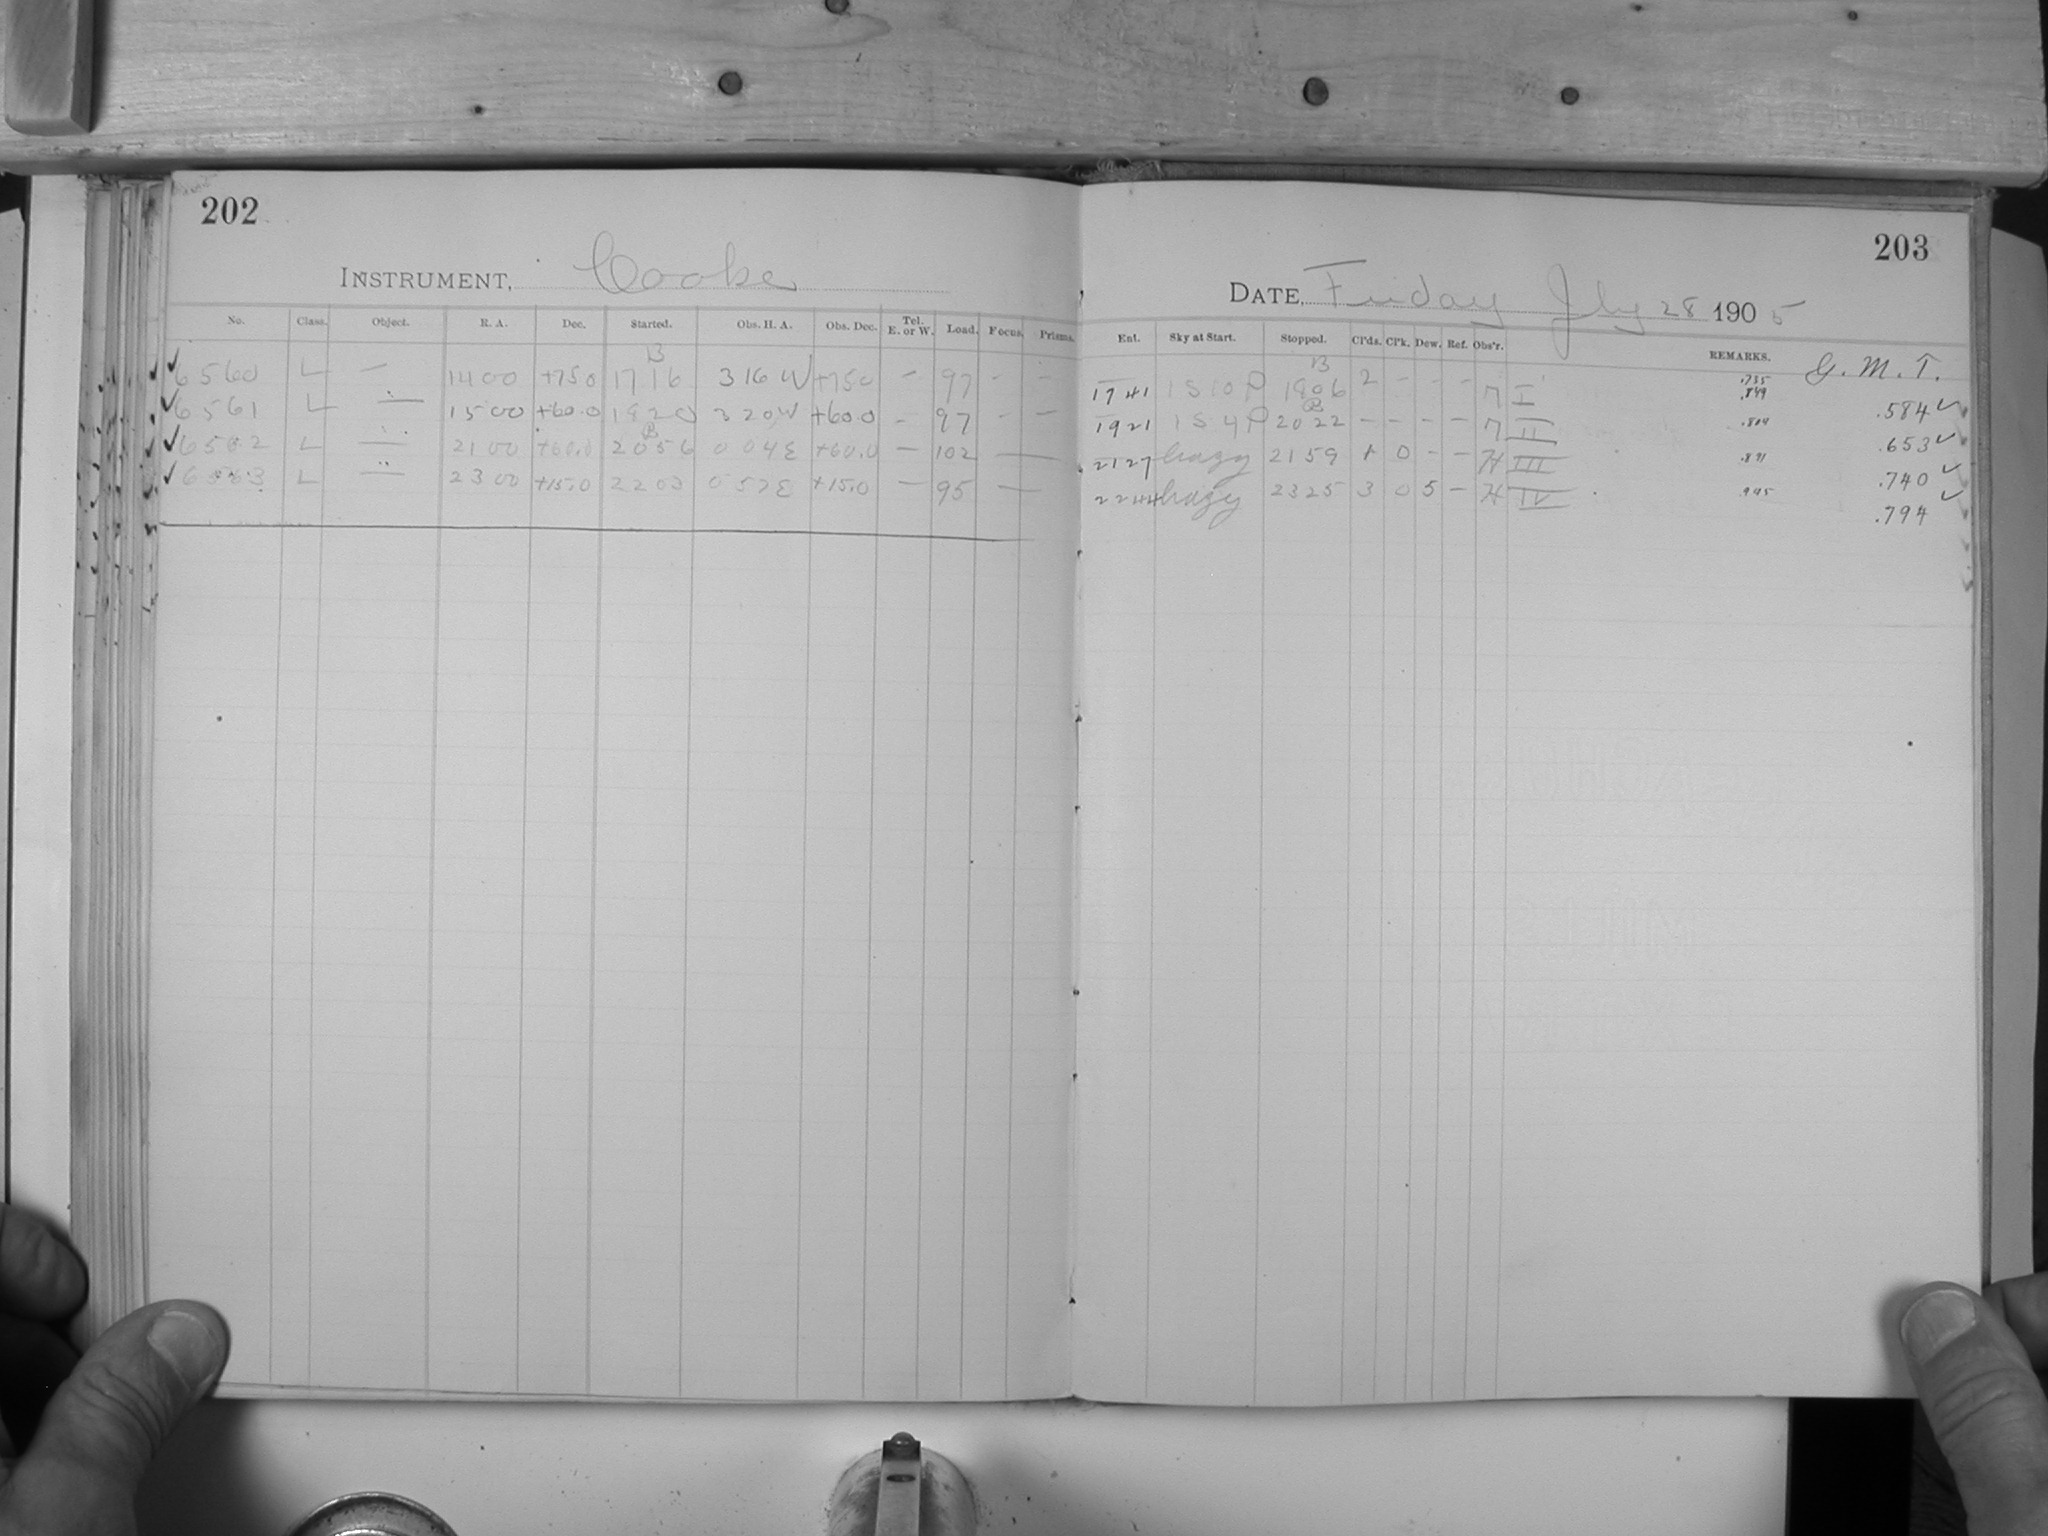 202
INSTRUMENT, Cooke
No. Class. Object. R. A. Dec. Started. Obs. H. A. Obs. Dec. Tel. E. or W. Load. Focus. Prisms.
B
6560 L — 1400 +750 1716 316 W +750 — 97 - -
6561 L — 1500 +60.0 1920 320W +60.0 — 97 - —
B
6562 L — 2100 +60.0 2056 004E +60.0 — 102 —
6563 L — 2300 +15.0 2203 057E +15.0 — 95 —
203
DATE, Friday July 28 1905
Ent. Sky at Start. Stopped. Cl'ds. Cl'k. Dew. Ref. Obs'r. REMARKS. G. M. T.
B
1741 1S10P 1906 2 - - - I .735 .849 .584 ✓
B
1921 1S4P 2022 - - - - II .804 .653 ✓
2127 hazy 2159 + 0 - - H III .871 .740 ✓
2244 hazy 2325 3 0 5 - H IV .995 .794 ✓